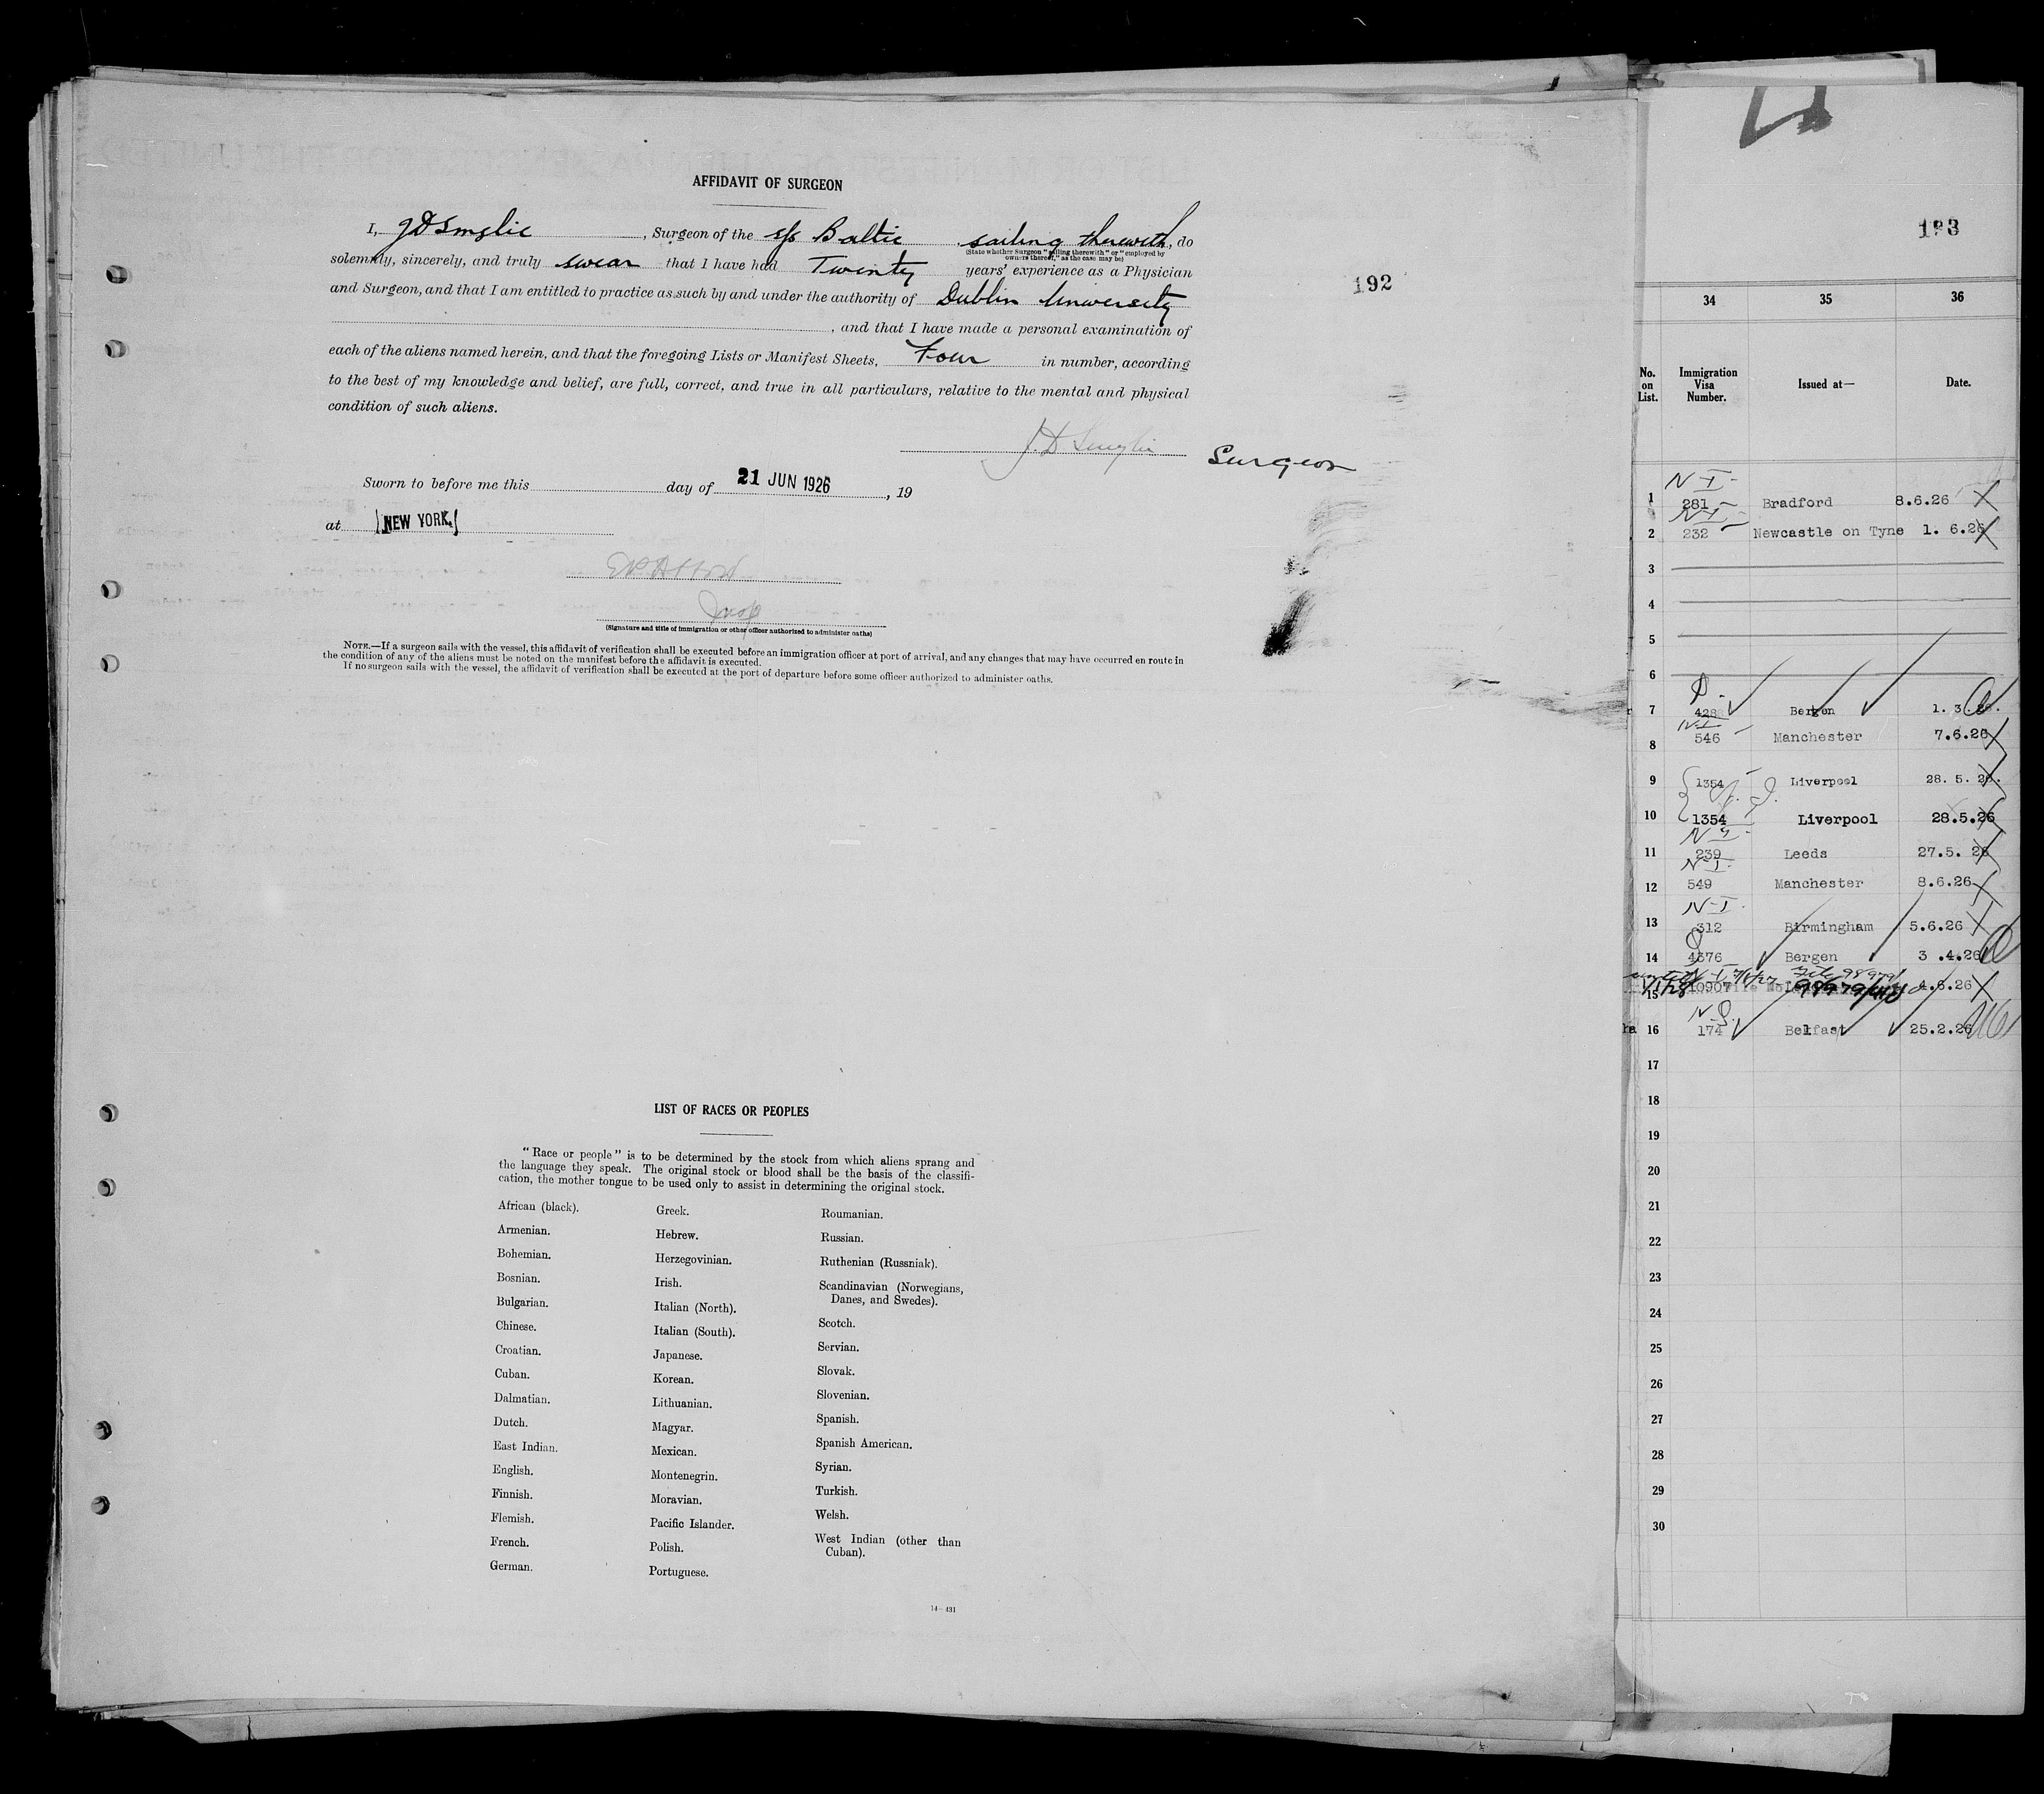 AFFIDAVIT OF SURGEON
I, , Surgeon of the s/s Baltic sailing therewith, do
(State whether Surgeon "sailing therewith" or "employed by
owners thereof," as the case may be)
solemnly, sincerely, and truly swear that I have had Twenty years' experience as a Physician
and Surgeon, and that I am entitled to practice as such by and under the authority of Dublin University
, and that I have made a personal examination of
each of the aliens named herein, and that the foregoing Lists or Manifest Sheets, Four in number, according
to the best of my knowledge and belief, are full, correct, and true in all particulars, relative to the mental and physical
condition of such aliens.
Surgeon
Sworn to before me this day of 21 JUN 1926, 19
at NEW YORK.
(Signature and title of immigration or other officer authorized to administer oaths)
NOTE.—If a surgeon sails with the vessel, this affidavit of verification shall be executed before an immigration officer at port of arrival, and any changes that may have occurred en route in
the condition of any of the aliens must be noted on the manifest before the affidavit is executed.
If no surgeon sails with the vessel, the affidavit of verification shall be executed at the port of departure before some officer authorized to administer oaths.
192
LIST OF RACES OR PEOPLES
"Race or people" is to be determined by the stock from which aliens sprang and
the language they speak. The original stock or blood shall be the basis of the classifi-
cation, the mother tongue to be used only to assist in determining the original stock.
African (black).
Armenian.
Bohemian.
Bosnian.
Bulgarian.
Chinese.
Croatian.
Cuban.
Dalmatian.
Dutch.
East Indian.
English.
Finnish.
Flemish.
French.
German.
Greek.
Hebrew.
Herzegovinian.
Irish.
Italian (North).
Italian (South).
Japanese.
Korean.
Lithuanian.
Magyar.
Mexican.
Montenegrin.
Moravian.
Pacific Islander.
Polish.
Portuguese.
Roumanian.
Russian.
Ruthenian (Russniak).
Scandinavian (Norwegians,
Danes, and Swedes).
Scotch.
Servian.
Slovak.
Slovenian.
Spanish.
Spanish American.
Syrian.
Turkish.
Welsh.
West Indian (other than
Cuban).
14—431
193
34 35 36
No. on List. Immigration Visa Number. Issued at— Date.
N-I-
1 281 Bradford 8.6.26
N-I-
2 232 Newcastle on Tyne 1. 6.26
3
4
5
6
7 428 Bergen 1. 3.26.
N-I
8 546 Manchester 7.6.26
9 1354 Liverpool 28. 5. 26.
10 1354 Liverpool 28.5.26
11 239 Leeds 27.5. 26
N-I-
12 549 Manchester 8.6.26
N-I-
13 312 Birmingham 5.6.26
14 4376 Bergen 3 .4.26
15 10907 4.6.26
16 174 Belfast 25.2.26
17
18
19
20
21
22
23
24
25
26
27
28
29
30